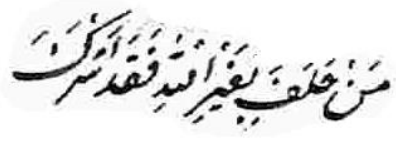 مَنْ حَلَفَ بِغَيْرِ اللّٰهِ فَقَدْ اَشْرَكَ